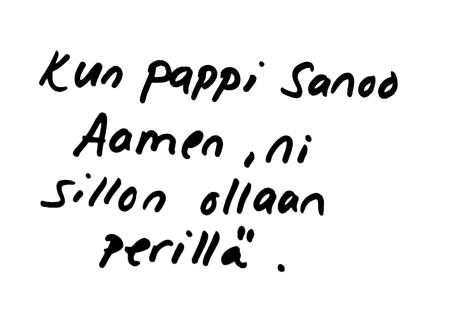 Kun pappi Sanoo
Aamen, ni
sillon ollaan
perillä.